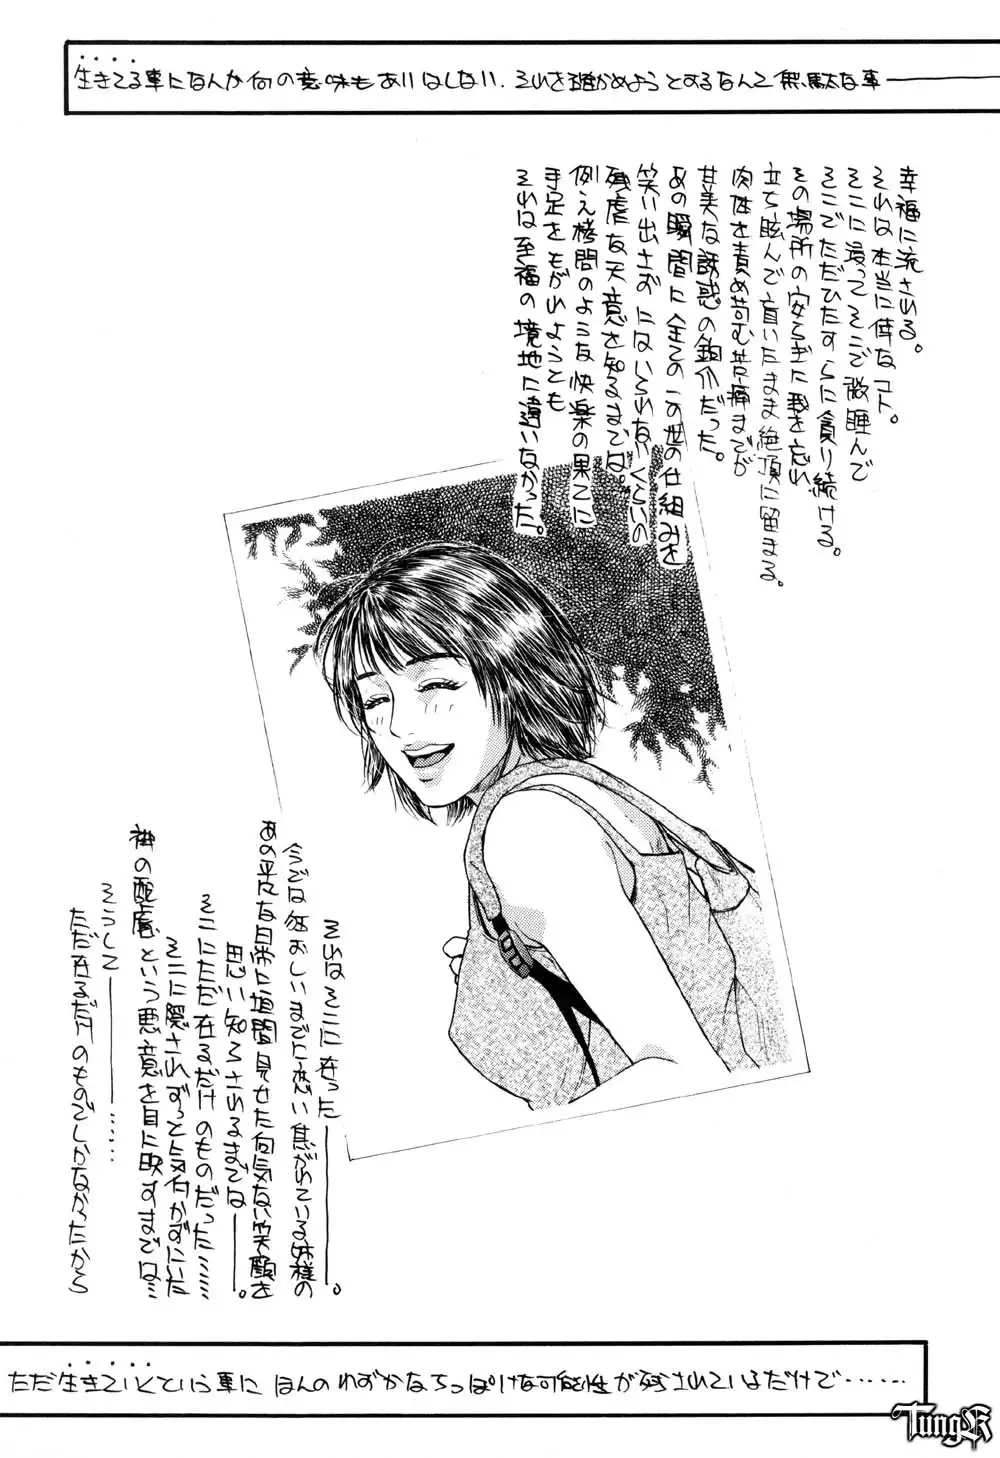 生きてる事になんか何の意味もありはしない．それを確かめようとするなんて無駄な事――
幸福に流される。
それは本当に倖なコト。
そこに浸ってそこで微睡んで
そこでただひたすらに貪り続ける。
その場所の安らぎに我を忘れ
立ち眩んで盲いたまま絶頂に留まる。
肉体を責め苛む苦痛までが
甘美な誘惑の釣介だった。
あの瞬間に全てのこの世の仕組みを
笑い出さずにはいられないくらいの
残虐な天意を知るまでは。
例え拷問のような快楽の果てに
手足をもがれようとも
それは至福の境地に違いなかった。
それはそこに在った―――。
今では狂おしいまでに恋い焦がれている姉様の
あの平凡な日常に垣間見せた何気ない笑顔を
思い知らされるまでは――。
そこにただ在るだけのものだった……
そこに隠されずっと気付かずにいた
神の配慮という悪意を目に映すまでは…
そうして―――……
ただ在るだけのものでしかなかったから
ただ生きていくという事に ほんのわずかなちっぽけな可能性が残されているだけで……
TungK